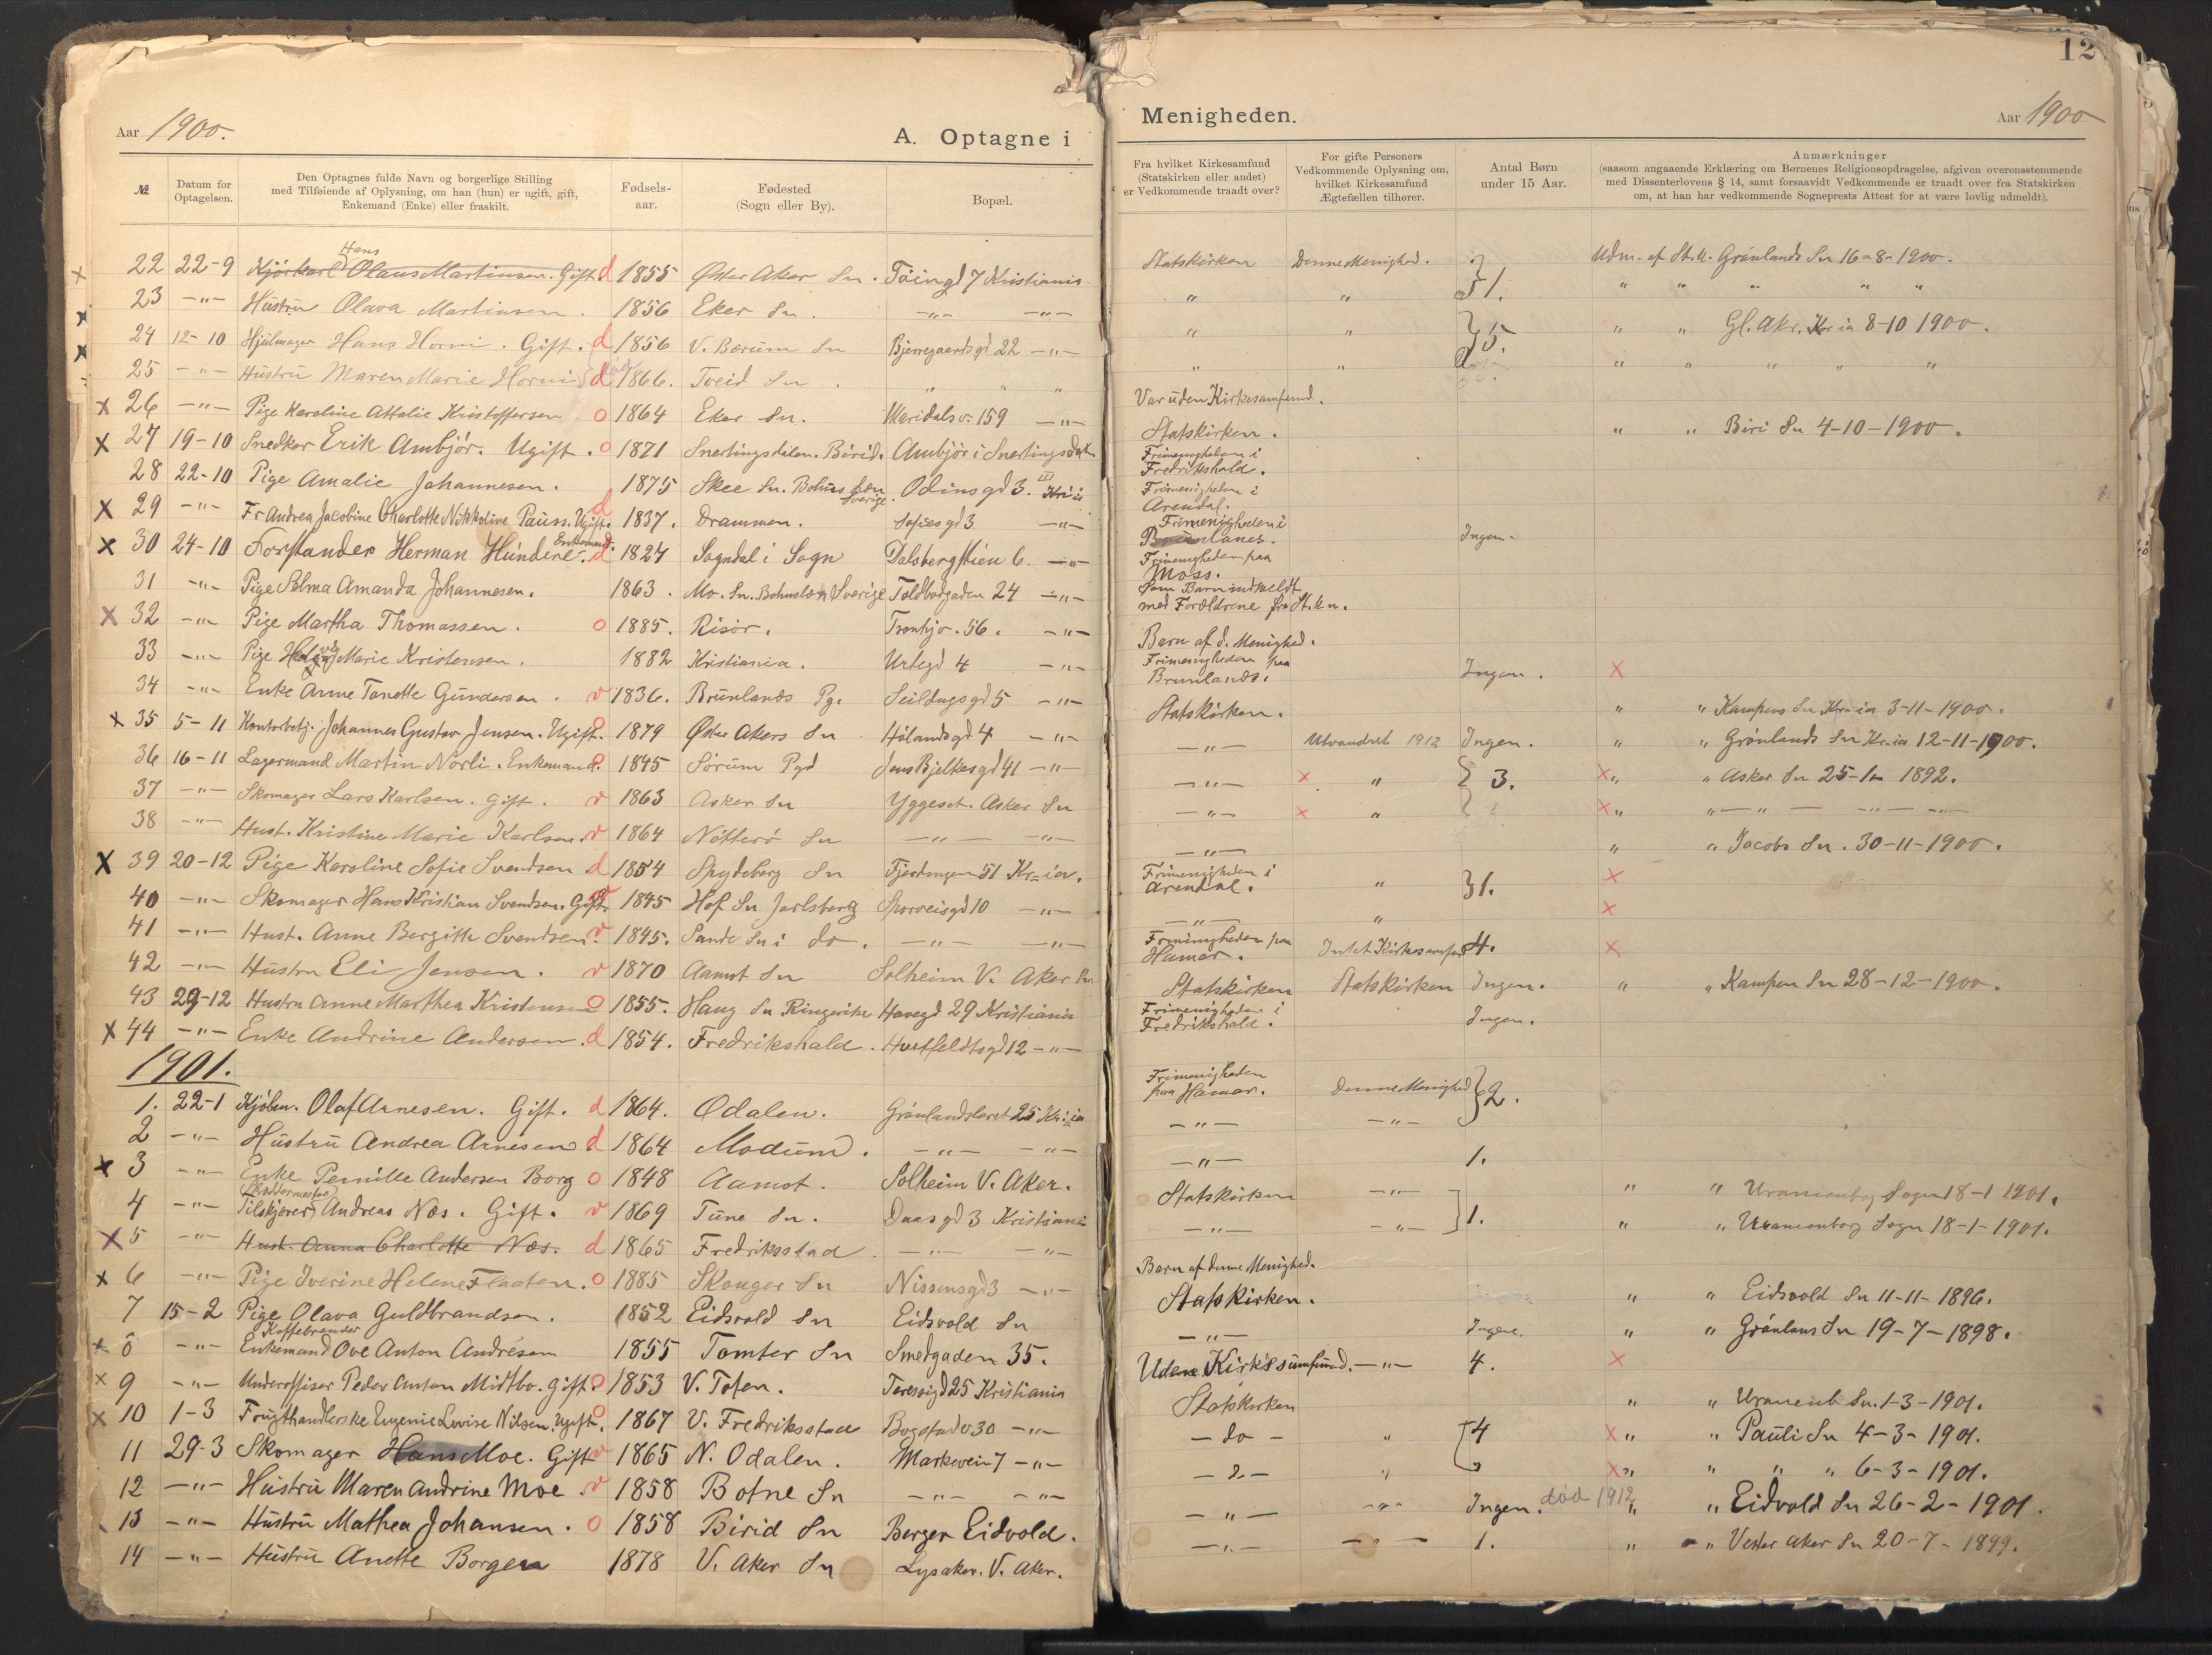 Aar 1900.
A. Optagne i
№
Datum for Optagelsen.
Den Optagnes fulde Navn og borgerlige Stilling
med Tilføiende af Oplysning, om han (hun) er ugift, gift,
Enkemand (Enke) eller fraskilt.
Fødsels-
aar.
Fødested
(Sogn eller By).
Bopæl.
Hans
22 22-9 Kjørkarl Olaus Martinsen. Gift. d 1855 Øster Aker Sn. Töiengd 7 Kristiania
23 -"- Hustru Olava Martinsen. 1856 Eker Sn. -"- -"-
24 12-10 Hjulmager Hans Horni. Gift. d 1856 V. Bærum Sn Bjerregaardsgd 22 -"-
25 -"- Hustru Maren Marie Horni d 1866. Tveid Sn. " "
x 26 -"- Pige Karoline Attalie Kristoffersen o 1864 Eker Sn. Maridalsv. 159 -"-
x 27 19-10 Snedker Erik Ambjör. Ugift. o 1871 Snertingsdalen. Birid. Ambjör i Snertingsdalen
28 22-10 Pige Amalie Johannesen. 1875 Skee Sn. Bohus Læn Sverige. Odinsgd 3. III Kr.ia
x 29 -"- Fr Andrea Jacobine Charlotte Nikkoline Pauss. Ugift. d 1837. Drammen. Sofiesgd 3 -"-
x 30 24-10 Forstander Herman Hundere. Enkemand. d 1827 Sogndal i Sogn Dalsbergstien 6. -"-
31 -"- Pige Selma Amanda Johannesen. 1863. Mo. Sn. Bohuslæn Sverige Toldbodgaden 24 -"-
x 32 -"- Pige Martha Thomassen. o 1885. Risör. Tronhjv. 56. -"-
33 -"- Pige Marie Kristensen. 1882 Kristiania. Urtegd 4 -"-
34 -"- Enke Anne Tanette Gundersen. v 1836. Brunlands Pg. Seildugsgd 5 -"-
x 35 5-11 Kontorbetj. Johannes Gustav Jensen. Ugift. o 1879 Øster Akers Sn Hölandsgd 4 -"-
36 16-11 Lagermand Martin Norli. Enkemand. o 1845 Sörum Pgd Jens Bjelkesgd 41 -"-
37 -"- Skomager Lars Karlsen. gift. v 1863 Asker Sn Yggeset. Asker Sn
38 -"- Hust. Kristine Marie Karlsen. v 1864 Nötterö Sn -"- -"-
x 39 20-12 Pige Karoline Sofie Svendsen. d 1854 Spydeberg Sn Fjerdingen 51 Kr=ia.
40 -"- Skomager Hans Kristian Svendsen. Gift. v 1845 Hof Sn Jarlsberg Sporveisgd 10 -"-
41 -"- Hust. Anne Bergitte Svendsen. v 1845. Sande Sn i do. -"- -"-
42 -"- Hustru Eli Jensen. v 1870 Aamot Sn Solheim V. Aker Sn
43 29-12 Hustru Anne Marthea Kristensen o 1855. Haug Sn Ringerike Havegd 29 Kristiania
x 44 -"- Enke Andrine Andersen. d 1854. Fredrikshald. Huitfeldtsgd 12 -"-
1901.
1. 22-1 Kjöbm. Olaf Arnesen. Gift. d 1864. Odalen. Grönlandsleret 25 Kr.ia
2 -"- Hustru Andrea Arnesen d 1864 Modum. -"- -"-
x 3 -"- Enke Pernille Andersen Borg o 1848 Aamot. Solheim V. Aker.
4 -"- Tilskjærer Andreas Næs. Gift. v 1869 Tune Sn. Daasgd 3 Kristiania
x 5 -"- Hust. Anna Charlotte Næs. d 1865 Fredriksstad -"- -"-
x 6 -"- Pige Iverine Helene Flaaten. o 1885 Skouger Sn Nissensgd 3 -"-
7 15-2 Pige Olava Guldbrandsen. 1852 Eidsvold Sn Eidsvold Sn
Kaffebrænder
x 8 -"- Enkemand Ove Anton Andresen 1855 Tomter Sn Smedgaden 35.
x 9 -"- Underoffiser Peder Anton Midtbo. gift. o 1853 V. Toten. Teresesgd 25 Kristiania
x 10 1-3 Frugthandlerske Eugenie Lovise Nilsen. Ugift. o 1867 V. Fredriksstad Bogstadv 30 -"-
11 29-3 Skomager Hans Moe. Gift v 1865 N. Odalen. Markvein 7 -"-
12 -"- Hustru Maren Andrine Moe. v 1858 Botne Sn -"- -"-
13 -"- Hustru Mathea Johansen. o 1858 Birid Sn Berger Eidvold.
14 -"- Hustru Anette Borgen 1878 V. Aker Sn Lysaker. V. Aker.
12
Menigheden.
Aar 1900
Fra hvilket Kirkesamfund
(Statskirken eller andet)
er Vedkommende traadt over?
For gifte Personers
Vedkommende Oplysning om,
hvilket Kirkesamfund
Ægtefællen tilhører.
Antal Børn
under 15 Aar.
Anmærkninger
(saasom angaaende Erklæring om Børnenes Religionsopdragelse, afgiven overensstemmende
med Dissenterlovens § 14, samt forsaavidt Vedkommende er traadt over fra Statskirken
om, at han har vedkommende Sogneprests Attest for at være lovlig udmeldt).
Statskirken Denne Menighed. Udm. af St. K. Grönlands Sn 16-8-1900.
" " 1. " " " " "
" " 5. " " Gl. Akr. Kr ia 8-10 1900.
" " " " " " "
Var uden Kirkesamfund.
Statskirken. " " Biri Sn 4-10-1900.
Frimenigheden i
Fredrikshald.
Frimenigheden i
Arendal.
Frimenigheden i
Brunlanes. Ingen.
Frimenigheden paa
Moss.
Som Barn indmeldt
med Forældrene fra St.k n.
Barn af d. Menighed.
Frimenigheden paa
Brunlands. Ingen. x
Statskirken. " " Kampens Sn Kr=ia 3-11-1900.
-"- Utvandret 1912 Ingen. " " Grönlands Sn Kr.ia 12-11-1900.
-"- x " 3. x " " Asker Sn 25-1 1892.
-"- x " x " "-"- -"- -"-
-"- " " Jacobs Sn. 30-11-1900.
Frimenigheden i
Arendal. " 1. x
-"- " x
Frimenigheden paa
Hamar. Intet Kirkesamfund 4. x
Statskirken Statskirken Ingen. " " Kampen Sn 28-12-1900.
Frimenigheden i
Fredrikshald. Ingen.
Frimenigheden
paa Hamar. Denne Menighed 2.
-"- -"-
-"- 1.
Statskirken -"- " " Uranienborg Sogn 18-1 1901.
-"- -"- 1. " " Uranienborg Sogn 18-1-1901.
Barn af denne Menighed.
Statskirken. " " Eidsvold Sn 11-11-1896.
-"- Ingen. " " Grönlans Sn 19-7-1898.
Uden Kirkesamfund. -"- 4. x
Statskirken " " Uranienb Sn. 1-3-1901.
- do - " 4 x " " Pauli Sn 4-3-1901.
-"- " x " " " " 6-3-1901.
-"- -"- Ingen. död 1912 " " Eidvold Sn 26-2-1901.
-"- -"- 1. " " Vester Aker Sn 20-7-1899.